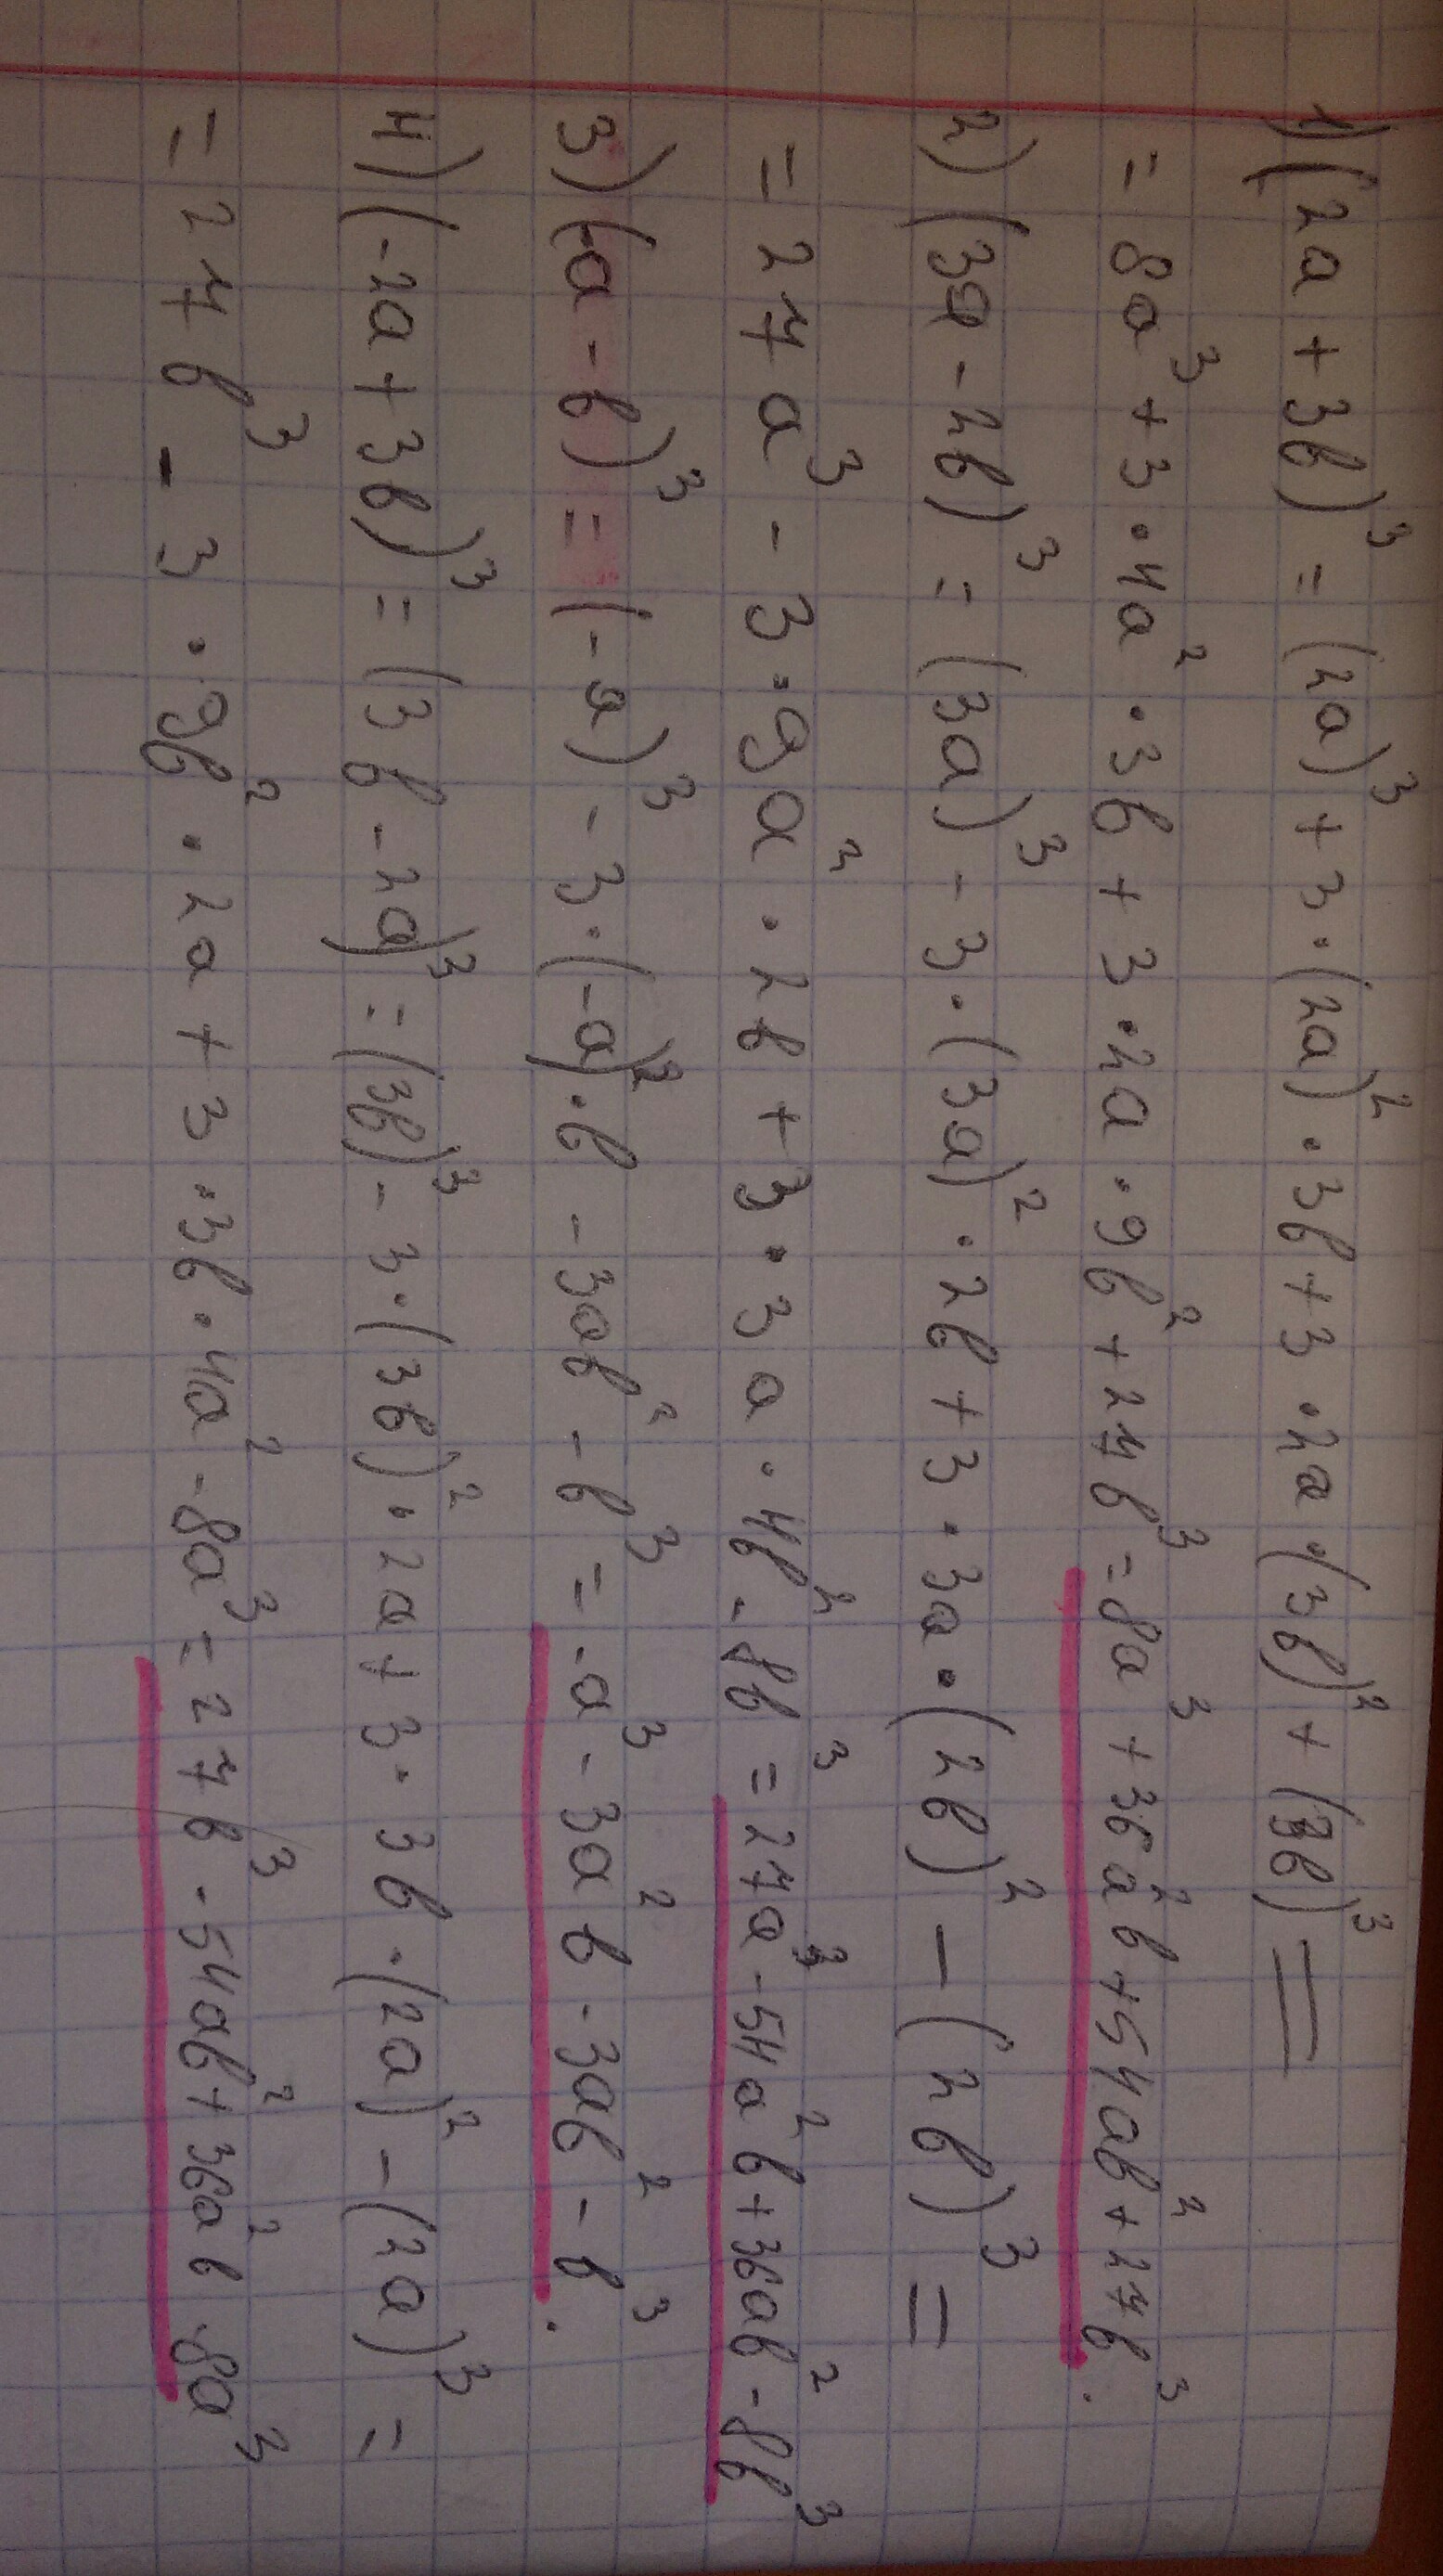 1) (2a + 3в)³ = (2a)³ + 3 · (2a)² · 3в + 3 · 2a · (3в)² + (3в)³ =
= 8a³ + 3 · 4a² · 3в + 3 · 2a · 9в² + 27в³ = 8a³ + 36a²в + 54aв² + 27в³.
2) (3a - 2в)³ = (3a)³ - 3 · (3a)² · 2в + 3 · 3a · (2в)² - (2в)³ =
= 27a³ - 3 · 9a² · 2в + 3 · 3a · 4в² - 8в³ = 27a³ - 54a²в + 36aв² - 8в³
3) (-a - в)³ = (-a)³ - 3 · (-a)² · в - 3aв² - в³ = -a³ - 3a²в - 3aв² - в³.
4) (-2a + 3в)³ = (3в - 2a)³ = (3в)³ - 3 · (3в)² · 2a + 3 · 3в · (2a)² - (2a)³ =
= 27в³ - 3 · 9в² · 2a + 3 · 3в · 4a² - 8a³ = 27в³ - 54aв² + 36a²в - 8a³